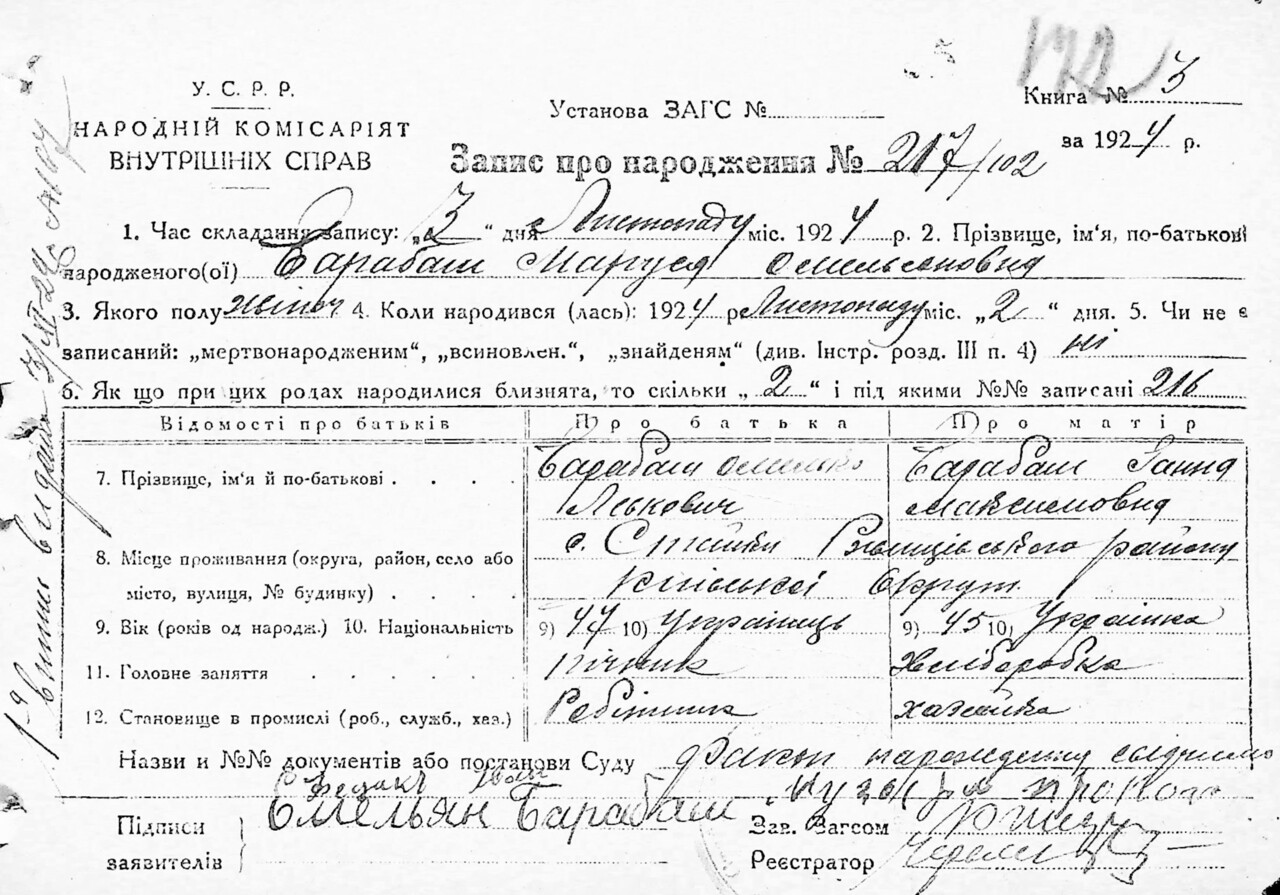 172
У. С. Р. Р.
НАРОДНІЙ КОМІСАРІЯТ
ВНУТРІШНІХ СПРАВ
Установа ЗАГС №
Книга № 3
за 1924 р.
Запис про народження № 217/102
1. Час складання запису: „3“ дня Листопаду міс. 1924 р. 2. Прізвище, ім'я, по-батькові
народженого(ої) Барабаш Маруся Омельяновна
3. Якого полу жіноч 4. Коли народився (лась): 1924 р Листопаду міс. „2“ дня. 5. Чи не є
записаний: „мертвонародженим“, „всиновлен.“, „знайденям“ (див. Інстр. розд. III п. 4) ні
6. Як що при цих родах народилися близнята, то скільки „2“ і під якими №№ записані 216
Відомості про батьків Про батька Про матір
7. Прізвище, ім'я й по-батькові . . . . Барабаш Омелько Барабаш Ганна
Яськович Максимовна
8. Місце проживання (округа, район, село або с. Стайки Ржищівського району
місто, вулиця, № будинку) . . . . Київської Округи
9. Вік (років од народж.) 10. Національність 9) 47 10) Українець 9) 45 10) Українка
11. Головне заняття . . . . . . Пічник Хліборобка
12. Становище в промислі (роб., служб., хаз.) Робітник хазяйка
Назви и №№ документів або постанови Суду Факт народження свідчимо
Підписи
заявителів
Емельян Барабаш
Зав. Загсом
Реєстратор
Випис видан 3/XI 24 р.